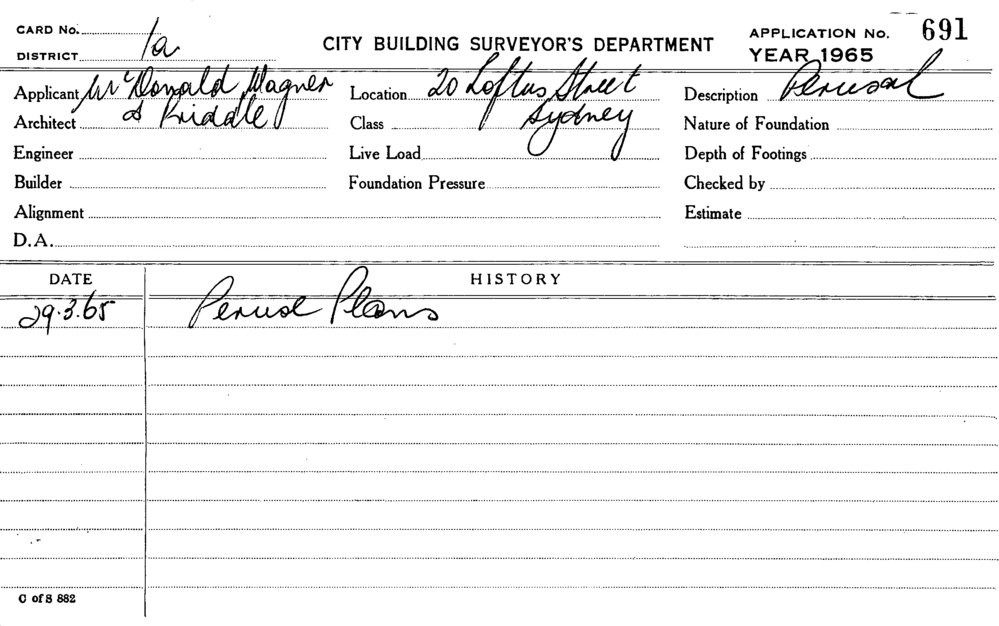 CARD No. 1a
DISTRICT
CITY BUILDING SURVEYOR'S DEPARTMENT
APPLICATION No. 691
YEAR 1965
Applicant McDonald, Wagner
Location 20 Loftus Street
Description Perusal
Architect & Priddle
Class Sydney
Nature of Foundation
Engineer
Live Load
Depth of Footings
Builder
Foundation Pressure
Checked by
Alignment
Estimate
D.A.
DATE
HISTORY
29.3.65 Peruse Plans
C of S 882